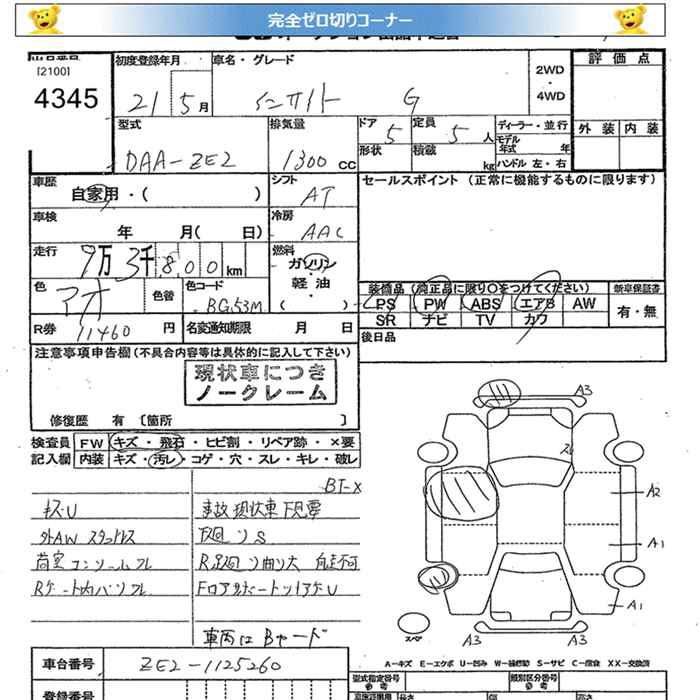 完全ゼロ切りコーナー
[2100]
4345
初度登録年月
21 5月
車名・グレード
インサイト G
2WD
・
4WD
評価点
外装 内装
型式
DAA-ZE2
排気量
1300 CC
ドア 5
形状
定員 5 人
積載 kg
ディーラー・並行
モデル年式 年
ハンドル 左・右
車歴
自家用・( )
シフト
AT
セールスポイント(正常に機能するものに限ります)
車検
年 月( 日)
冷房
AAC
走行
9万3千800km
燃料
ガソリン
軽油
( )
色
アオ
色替
色コード
BG53M
装備品(純正品に限り○をつけてください)
新車保証書
PS PW ABS エアB AW
有・無
SR ナビ TV カワ
R券
11460 円
名変通知期限 月 日
後日品
注意事項申告欄(不具合内容等は具体的に記入して下さい)
現状車につき
ノークレーム
修復歴 有 〔箇所 〕
検査員
記入欄
FW キズ・飛石・ヒビ割・リペア跡・×要
内装 キズ・汚レ・コゲ・穴・スレ・キレ・破レ
BT-X
キズU
事故現状車下見要
外AW スタッドレス
下廻りS
荷室コンソールスレ
Rゲート内バリスレ
車両はBヤード
A3
スレ
A2
A1
A1
スペア
A3
A3
A-キズ E-エクボ U-凹み W-補修跡 S-サビ C-腐食 XX-交換済
車台番号
ZE2-1125260
登録番号
型式指定番号
参考
類別区分番号
参考